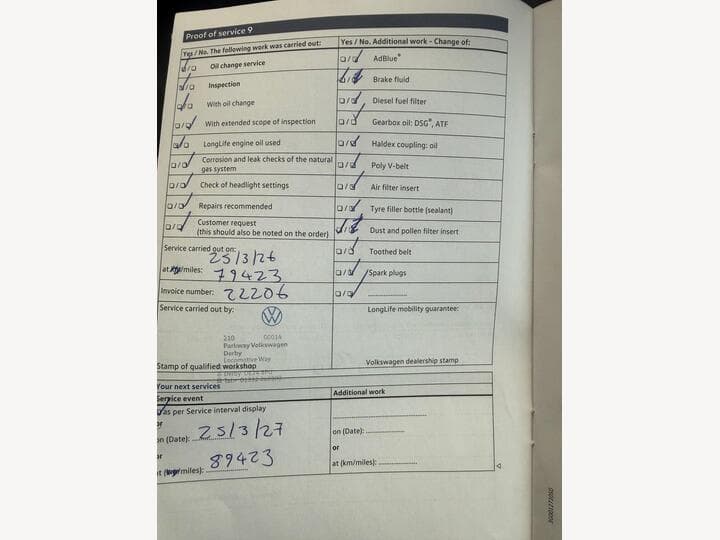 Proof of service 9
Yes / No. The following work was carried out:
Oil change service
Inspection
With oil change
With extended scope of inspection
LongLife engine oil used
Corrosion and leak checks of the natural
gas system
Check of headlight settings
Repairs recommended
Customer request
(this should also be noted on the order)
Service carried out on:
25/3/26
at km/miles: 79423
Invoice number: 22206
Service carried out by:
210 00014
Parkway Volkswagen
Derby
Locomotive Way
Stamp of qualified workshop
Yes / No. Additional work - Change of:
AdBlue®
Brake fluid
Diesel fuel filter
Gearbox oil: DSG®, ATF
Haldex coupling: oil
Poly V-belt
Air filter insert
Tyre filler bottle (sealant)
Dust and pollen filter insert
Toothed belt
Spark plugs
LongLife mobility guarantee:
Volkswagen dealership stamp
Your next services
Service event
as per Service interval display
or
on (Date): 25/3/27
or
at (km/miles): 89423
Additional work
on (Date):
or
at (km/miles):